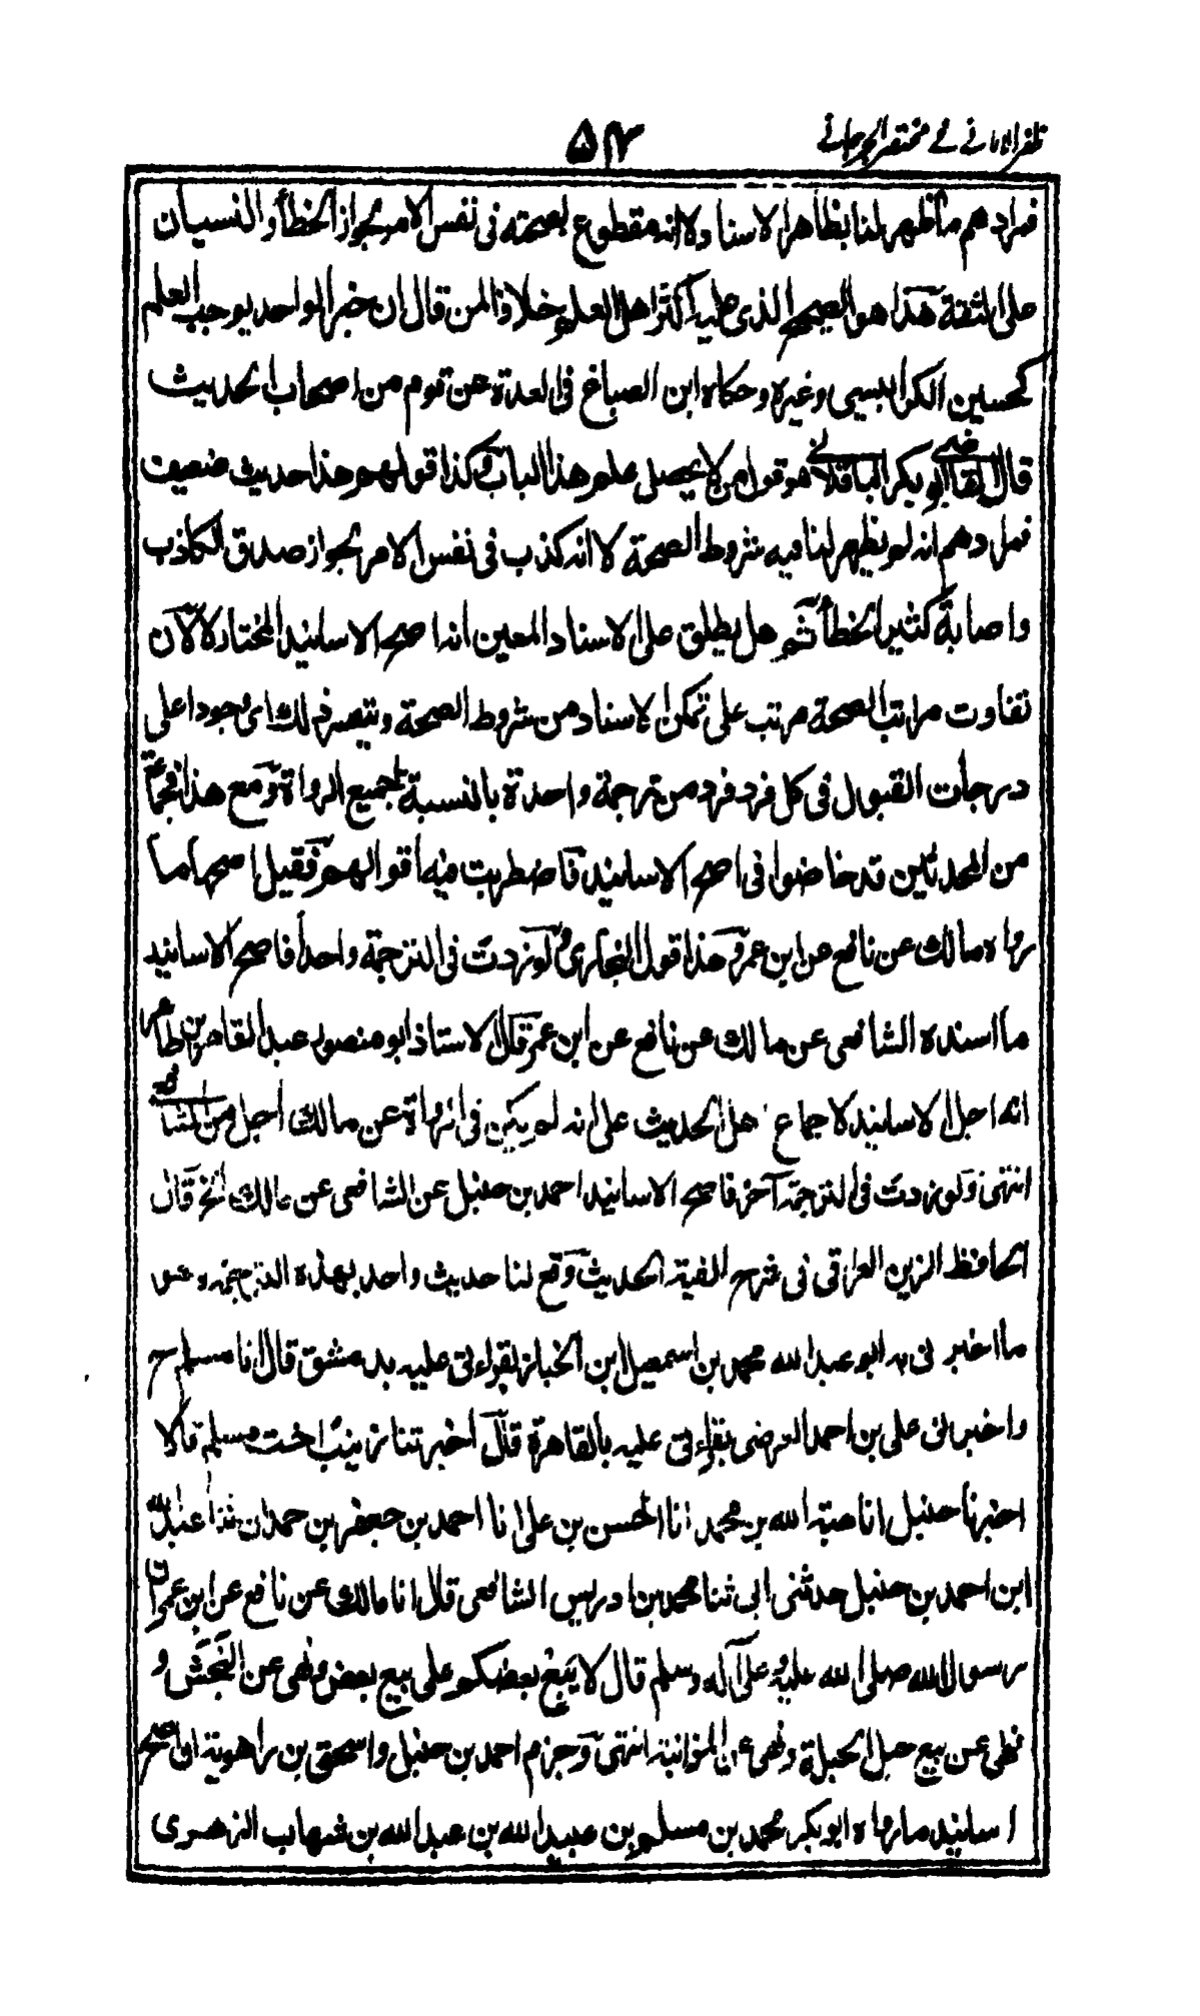 ظفر الامانے فے مختصر الجرجانے
۵۴
فمرادهم ما ظهر لنا بظاهر الاسناد لا انه مقطوع بصحته فى نفس الامر لجواز الخطأ والنسيان
على الثقة هذا هو الصحيح الذى عليه اكثر اهل العلم خلافا لمن قال ان خبر الواحد يوجب العلم
كحسين الكرابيسى وغيره وحكاه ابن الصباغ فى العدة عن قوم من اصحاب الحديث
قال القاضى ابو بكر الباقلانى هو قول من لا يحصل علم هذا الباب وكذا قولهم هذا حديث ضعيف
فمرادهم انه لم يظهر لنا فيه شروط الصحة لا انه كذب فى نفس الامر لجواز صدق الكاذب
واصابة كثير الخطأ ثم هل يطلق على الاسناد المعين انه اصح الاسانيد المختار لا لان
تفاوت مراتب الصحة مرتب على تمكن الاسناد من شروط الصحة ويتعسر ذلك اى وجود اعلى
درجات القبول فى كل فرد فرد من ترجمة واحدة بالنسبة لجميع الرواة ومع هذا فجماعة
من المحدثين قد خاضوا فى اصح الاسانيد فاضطربت فيه اقوالهم فقيل اصحها ما
رواه مالك عن نافع عن ابن عمر وهذا قول البخارى ولو زدت فى الترجمة واحدا فاصح الاسانيد
ما اسنده الشافعى عن مالك عن نافع عن ابن عمر قال الاستاذ ابو منصور عبد القاهر بن طاهر
انه اجل الاسانيد لاجماع اهل الحديث على انه لم يكن فى الرواة عن مالك اجل من الشافعى
انتهى ولو زدت فى الترجمة آخر فاصح الاسانيد احمد بن حنبل عن الشافعى عن مالك الخ قال
الحافظ الزين العراقى فى شرح الفية الحديث وقع لنا حديث واحد بهذه الترجمة وهو
ما اخبرنى به ابو عبد الله محمد بن اسمعيل ابن الخباز بقراءتى عليه بدمشق قال انا مسلم ح
واخبرنى على بن احمد العرضى بقراءتى عليه بالقاهرة قال اخبرتنا زينب اخت مسلم قالا
اخبرنا حنبل انا هبة الله بن محمد انا الحسن بن على انا احمد بن جعفر بن حمدان ثنا عبد الله
ابن احمد بن حنبل حدثنى ابى ثنا محمد بن ادريس الشافعى قال انا مالك عن نافع عن ابن عمر ان
رسول الله صلى الله عليه وعلى آله وسلم قال لا يبع بعضكم على بيع بعض ونهى عن النجش و
نهى عن بيع حبل الحبلة ونهى عن المزابنة انتهى وجزم احمد بن حنبل واسحق بن راهويه ان اصح
اسانيد ما رواه ابو بكر محمد بن مسلم بن عبيد الله بن عبد الله بن شهاب الزهرى